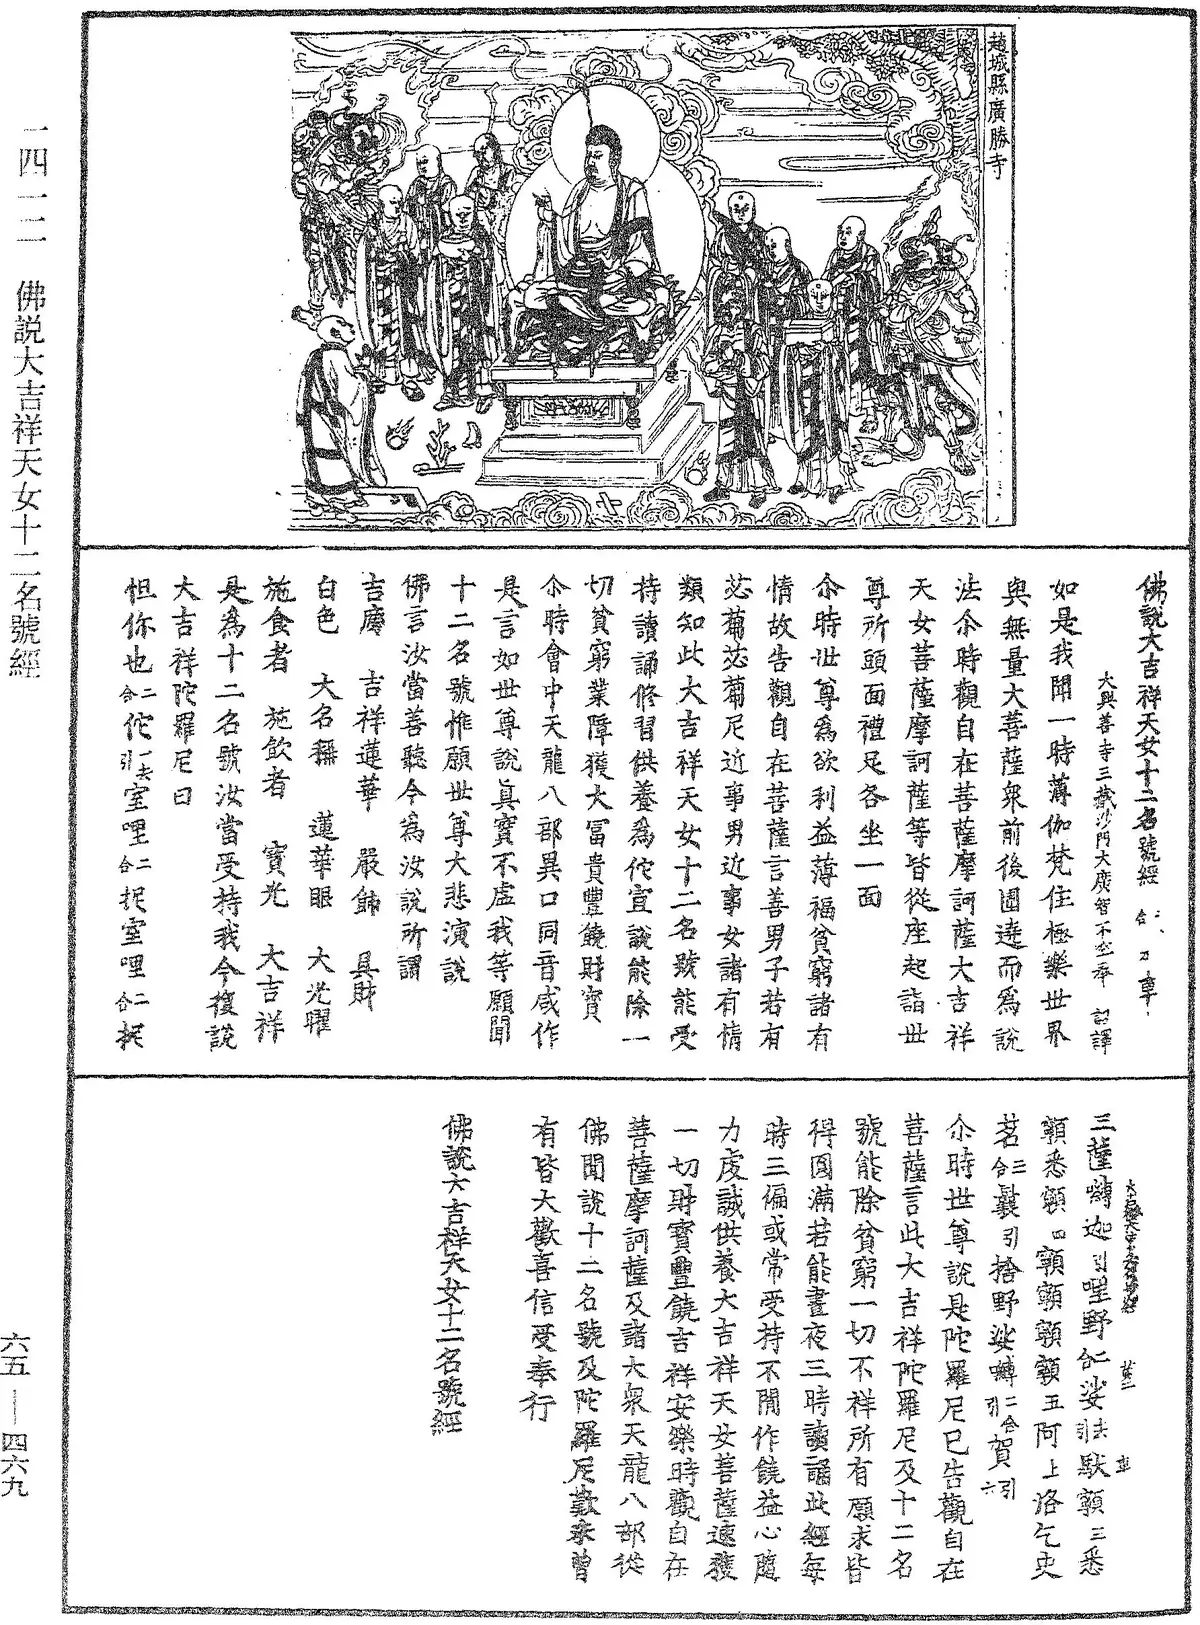 一四一二　佛説大吉祥天女十二名號經
趙城縣廣勝寺
佛說大吉祥天女十二名號經
大興善寺三藏沙門大廣智不空奉　詔譯
如是我聞一時薄伽梵住極樂世界
與無量大菩薩衆前後圍遶而為說
法尒時觀自在菩薩摩訶薩大吉祥
天女菩薩摩訶薩等皆從座起詣世
尊所頭面禮足各坐一面
尒時世尊為欲利益薄福貧窮諸有
情故告觀自在菩薩言善男子若有
苾蒭苾蒭尼近事男近事女諸有情
類知此大吉祥天女十二名號能受
持讀誦修習供養為佗宣說能除一
切貧窮業障獲大冨貴豐饒財寳
尒時會中天龍八部異口同音咸作
是言如世尊說真實不虛我等願聞
十二名號惟願世尊大悲演說
佛言汝當善聽今為汝說所謂
吉慶　吉祥蓮華　嚴飾　具財
白色　大名稱　蓮華眼　大光曜
施食者　施飲者　寳光　大吉祥
是為十二名號汝當受持我今復說
大吉祥陀羅尼曰
怛你也二合佗引一去室哩二合抳室哩二合抳
三薩嚩迦引哩野二合娑去引馱額三悉
額悉額四額額額額五阿上洛乞史
茗三合曩引捨野娑嚩二合引賀引六
尒時世尊說是陀羅尼已告觀自在
菩薩言此大吉祥陀羅尼及十二名
號能除貧窮一切不祥所有願求皆
得圓滿若能晝夜三時讀誦此經每
時三徧或常受持不閒作饒益心隨
力虔誠供養大吉祥天女菩薩速獲
一切財寳豐饒吉祥安樂時觀自在
菩薩摩訶薩及諸大衆天龍八部從
佛聞說十二名號及陀羅尼歎未曾
有皆大歡喜信受奉行
佛說大吉祥天女十二名號經
六五—四六九